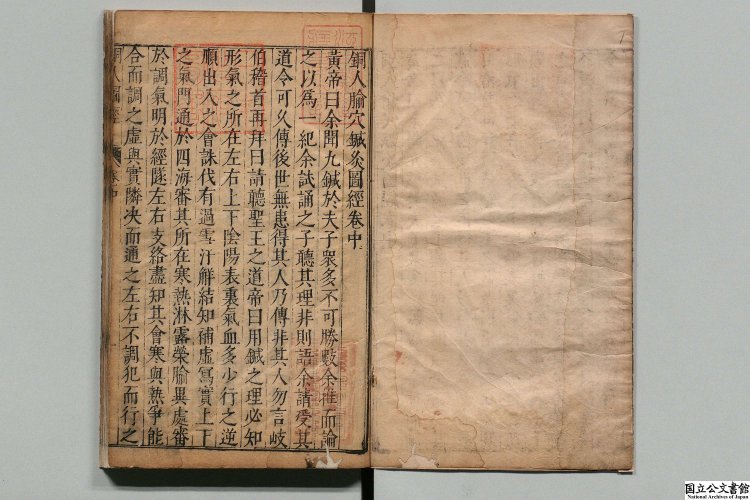 銅人腧穴鍼灸圖經卷中
黃帝曰余聞九鍼於夫子衆多不可勝數余推而論
之以爲一紀余試誦之子聽其理非則語余請受其
道令可久傳後世無患得其人乃傳非其人勿言岐
伯稽首再拜曰請聽聖王之道帝曰用鍼之理必知
形氣之所在左右上下陰陽表裏氣血多少行之逆
順出入之會誅伐有過雪汙解結知補虛寫實上下
之氣門通於四海審其所在寒熱淋露滎腧異處審
於調氣明於經隧左右支絡盡知其會寒與熱爭能
合而調之虛與實隣决而通之左右不調犯而行之
卷中
国立公文書館
National Archives of Japan